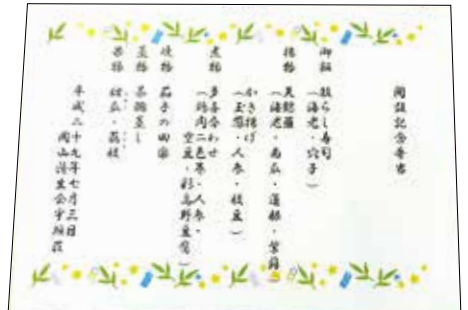 開設記念昼食
御飯 散らし寿司
(海老・穴子)
揚物 天麩羅
(海老・南瓜・蓮根・紫蘇)
かき揚げ
(玉葱・人参・枝豆)
煮物 多喜合わせ
(鶏肉二色巻・人参・
空豆・彩高野豆腐)
焼物 茄子の田楽
蒸物 茶碗蒸し
果物 甜瓜・荔枝
平成二十九年七月三日
岡山済生会守照荘